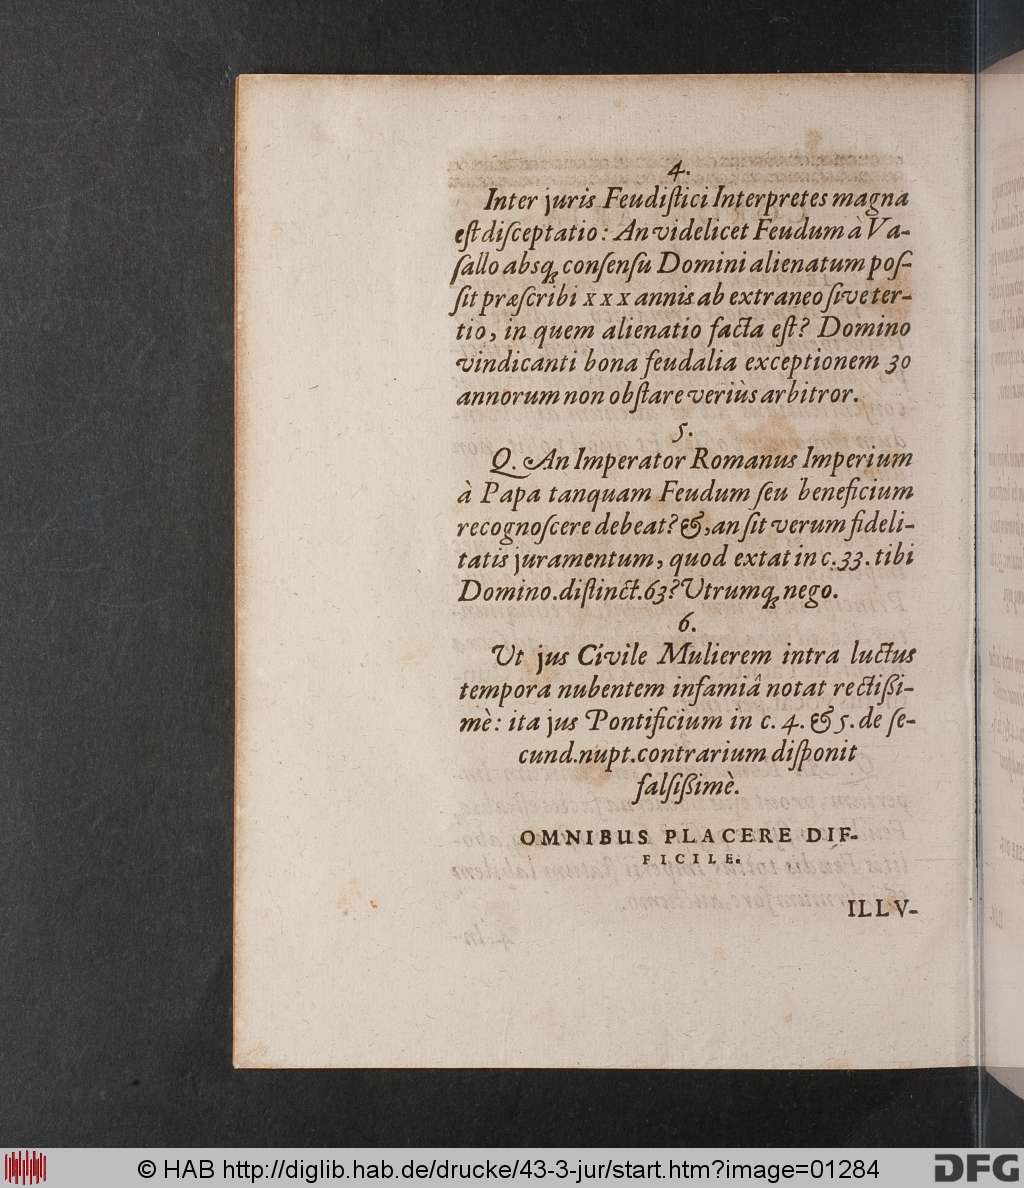 4.
Inter juris Feudiſtici Interpretes magna
eſt diſceptatio: An videlicet Feudum à Va-
ſallo absq; conſenſu Domini alienatum poſ-
ſit præſcribi xxx annis ab extraneo ſive ter-
tio, in quem alienatio facta eſt? Domino
vindicanti bona feudalia exceptionem 30
annorum non obſtare veriùs arbitror.
5.
Q. An Imperator Romanus Imperium
à Papa tanquam Feudum ſeu beneficium
recognoſcere debeat? &, an ſit verum fideli-
tatis juramentum, quod extat in c. 33. tibi
Domino. diſtinct. 63? Utrumq; nego.
6.
Ut jus Civile Mulierem intra luctus
tempora nubentem infamiâ notat rectißi-
mè: ita jus Pontificium in c. 4. & 5. de ſe-
cund. nupt. contrarium diſponit
falſißimè.
OMNIBUS PLACERE DIF-
FICILE.
ILLV-
© HAB http://diglib.hab.de/drucke/43-3-jur/start.htm?image=01284
DFG